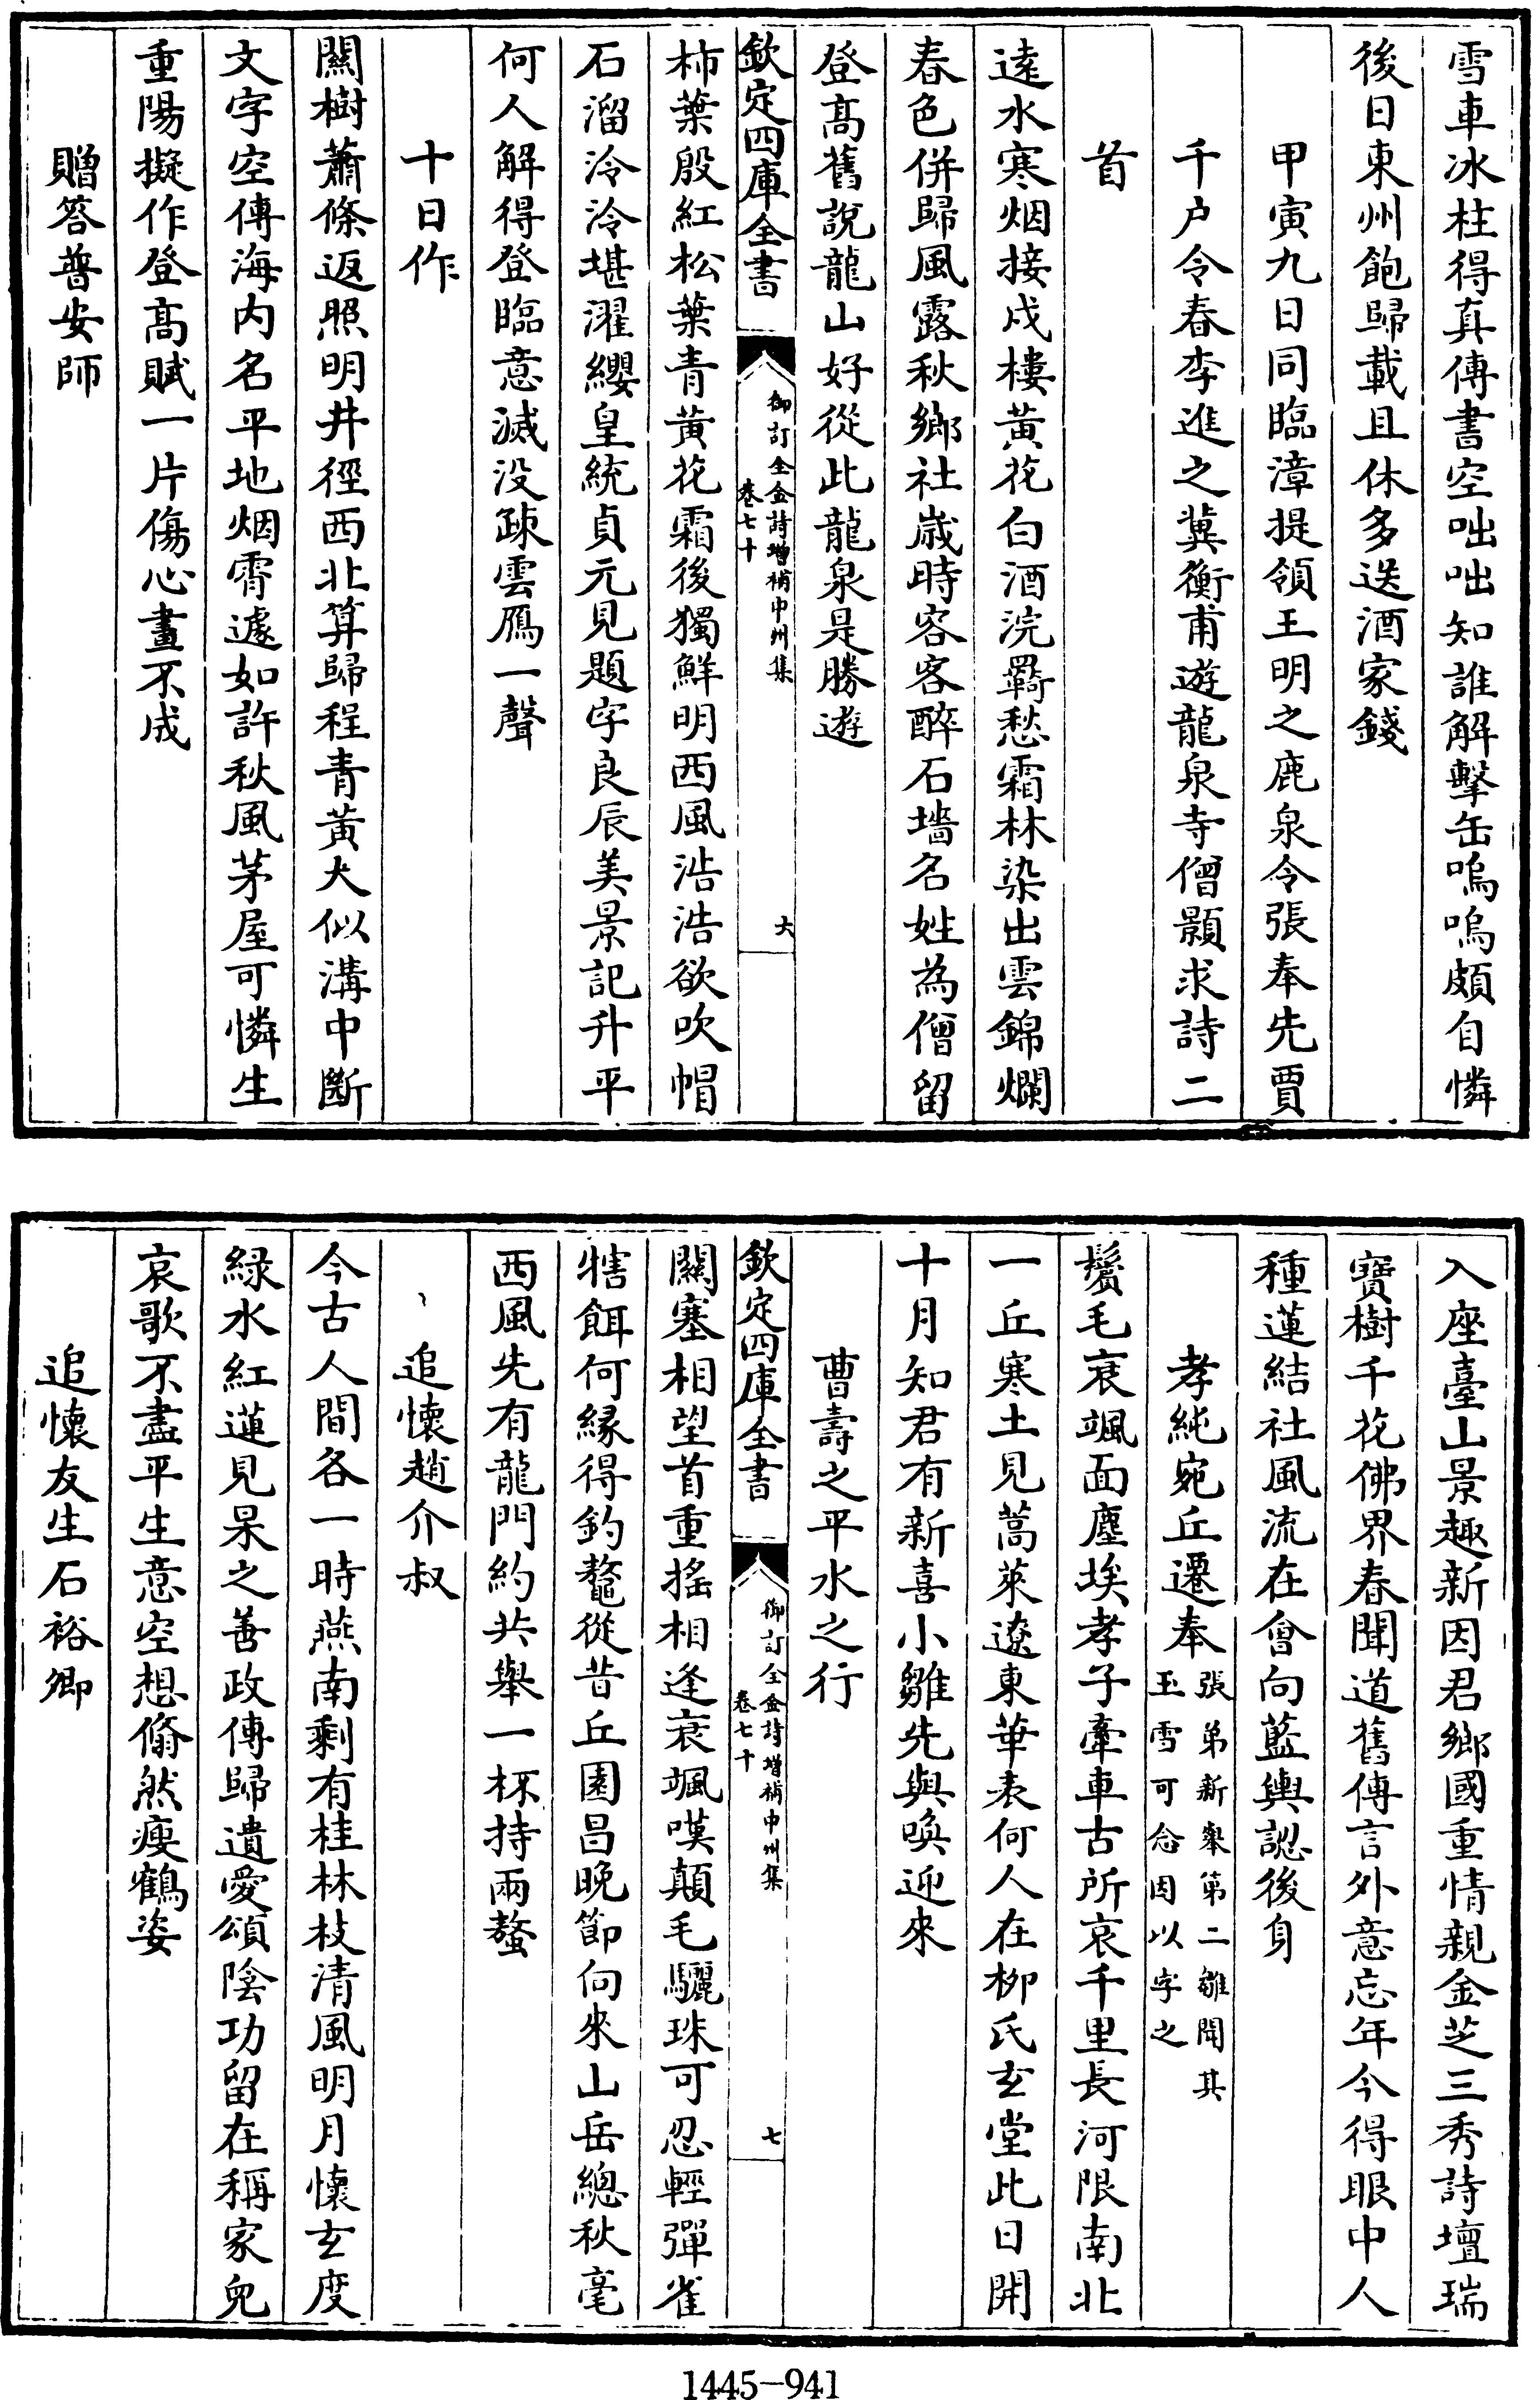 雪車冰柱得真傳書空咄咄知誰解擊缶嗚嗚頗自憐
後日東州飽歸載且休多送酒家錢
甲寅九日同臨漳提領王明之鹿泉令張奉先賈
千户令春李進之冀衡甫遊龍泉寺僧顥求詩二
首
逺水寒烟接戍樓黄花白酒浣羇愁霜林染出雲錦爛
春色併歸風露秋鄉社歳時客客醉石墻名姓為僧留
登髙舊說龍山好從此龍泉是勝遊
欽定四庫全書
御訂全金詩增補中州集
卷七十
六
柿葉殷紅松葉青黄花霜後獨鮮明西風浩浩欲吹帽
石溜泠泠堪濯纓皇統貞元見題字良辰美景記升平
何人解得登臨意滅没疎雲鴈一聲
十日作
闗樹蕭條返照明井徑西北算歸程青黄大似溝中斷
文字空傳海内名平地烟霄遽如許秋風茅屋可憐生
重陽擬作登髙賦一片傷心畫不成
贈答普安師
入座臺山景趣新因君鄉國重情親金芝三秀詩壇瑞
寳樹千花佛界春聞道舊傳言外意忘年今得眼中人
種蓮結社風流在會向藍輿認後身
孝純宛丘遷奉
張弟新舉第二雛聞其
玉雪可念因以字之
鬢毛衰颯面塵埃孝子牽車古所哀千里長河限南北
一丘寒土見蒿萊遼東華表何人在柳氏玄堂此日開
十月知君有新喜小雛先與喚迎來
曹壽之平水之行
欽定四庫全書
御訂全金詩增補中州集
卷七十
七
闗塞相望首重搖相逢衰颯嘆顛毛驪珠可忍輕彈雀
犗餌何縁得釣鼇從昔丘園昌晚節向來山岳總秋毫
西風先有龍門約共舉一杯持兩螯
追懷趙介叔
今古人間各一時燕南剩有桂林枝清風明月懷玄度
緑水紅蓮見杲之善政傳歸遺愛頌陰功留在稱家兒
哀歌不盡平生意空想翛然瘦鶴姿
追懷友生石裕卿
1445-941